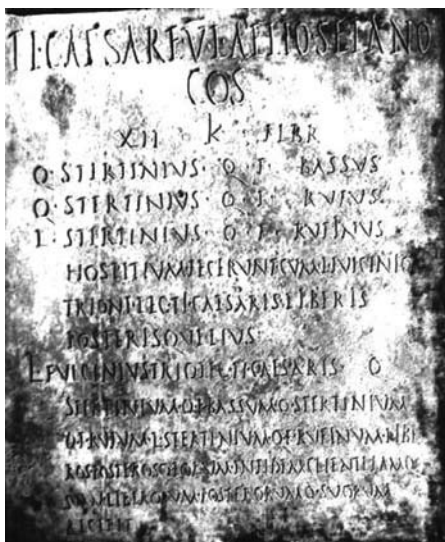 TI·CAESARE·V·L·AELIO·SEIANO
COS
XII K FEBR
Q·STERTINIVS·Q·F·BASSVS
Q·STERTINIVS·Q·F·RVFVS
L·STERTINIVS·Q·F·RVFINVS
HOSPITIVM·FECERVNT·CVM·L·FVLCINIO
TRIONE·LEG·TI·CAESARIS·LIBERIS
POSTERISQVE·EIVS
L·FVLCINIVS·TRIO·LEG·TI·CAESARIS·Q
STERTINIVM·Q·F·BASSVM·Q·STERTINIVM
Q·F·RVFVM·L·STERTINIVM·Q·F·RVFINVM·LIBE
ROS·POSTEROSQ·EORVM·IN·FIDEM·CLIENTELAMQ
SVAM·LIBERORVM·POSTERORVMQ·SVORVM
RECEPIT